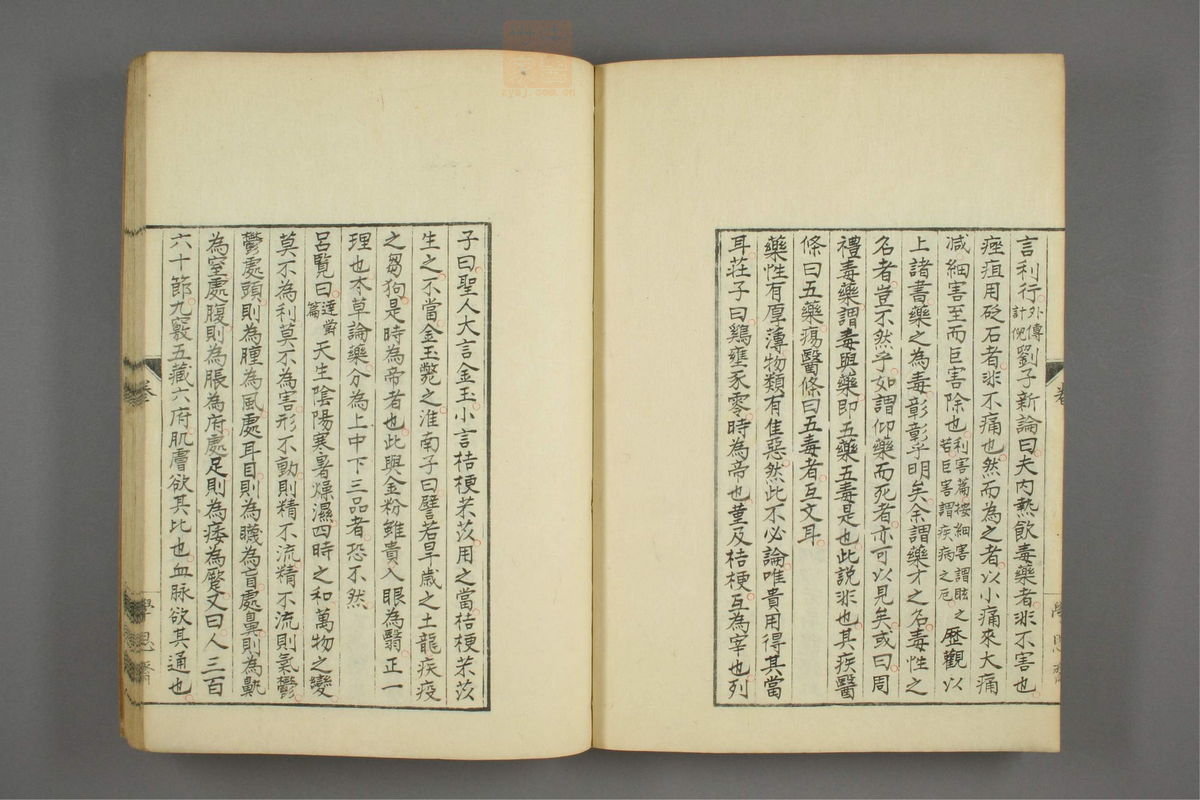 言利行外傳計倪劉子新論曰夫内熱飲毒藥者非不害也
痤疽用砭石者非不痛也然而為之者以小痛來大痛
减細害至而巨害除也利害篇按細害謂眩之若巨害謂疾病之厄歷觀以
上諸書藥之為毒彰彰乎明矣余謂藥才之名毒性之
名者豈不然乎如謂仰藥而死者亦可以見矣或曰周
禮毒藥謂毒與藥即五藥五毒是也此說非也其疾醫
條曰五藥瘍醫條曰五毒者互文耳
藥性有厚薄物類有隹惡然此不必論唯貴用得其當
耳莊子曰鷄壅豕零時為帝也堇及桔梗互為宰也列
子曰聖人大言金玉小言桔梗芣苡用之當桔梗芣苡
生之不當金玉斃之淮南子曰譬若旱歲之土龍疾疫
之芻狗是時為帝者也此與金粉雖貴入眼為翳正一
理也本草論藥分為上中下三品者恐不然
呂覽曰達鬱篇天生陰陽寒暑燥濕四時之和萬物之變
莫不為利莫不為害形不動則精不流精不流則氣鬱
鬱處頭則為腫為風處耳目則為䁾為盲處鼻則為鼽
為窒處腹則為脹為府處足則為痿為蹷又曰人三百
六十節九竅五藏六府肌膚欲其比也血脉欲其通也
學思齋
zysj.com.cn